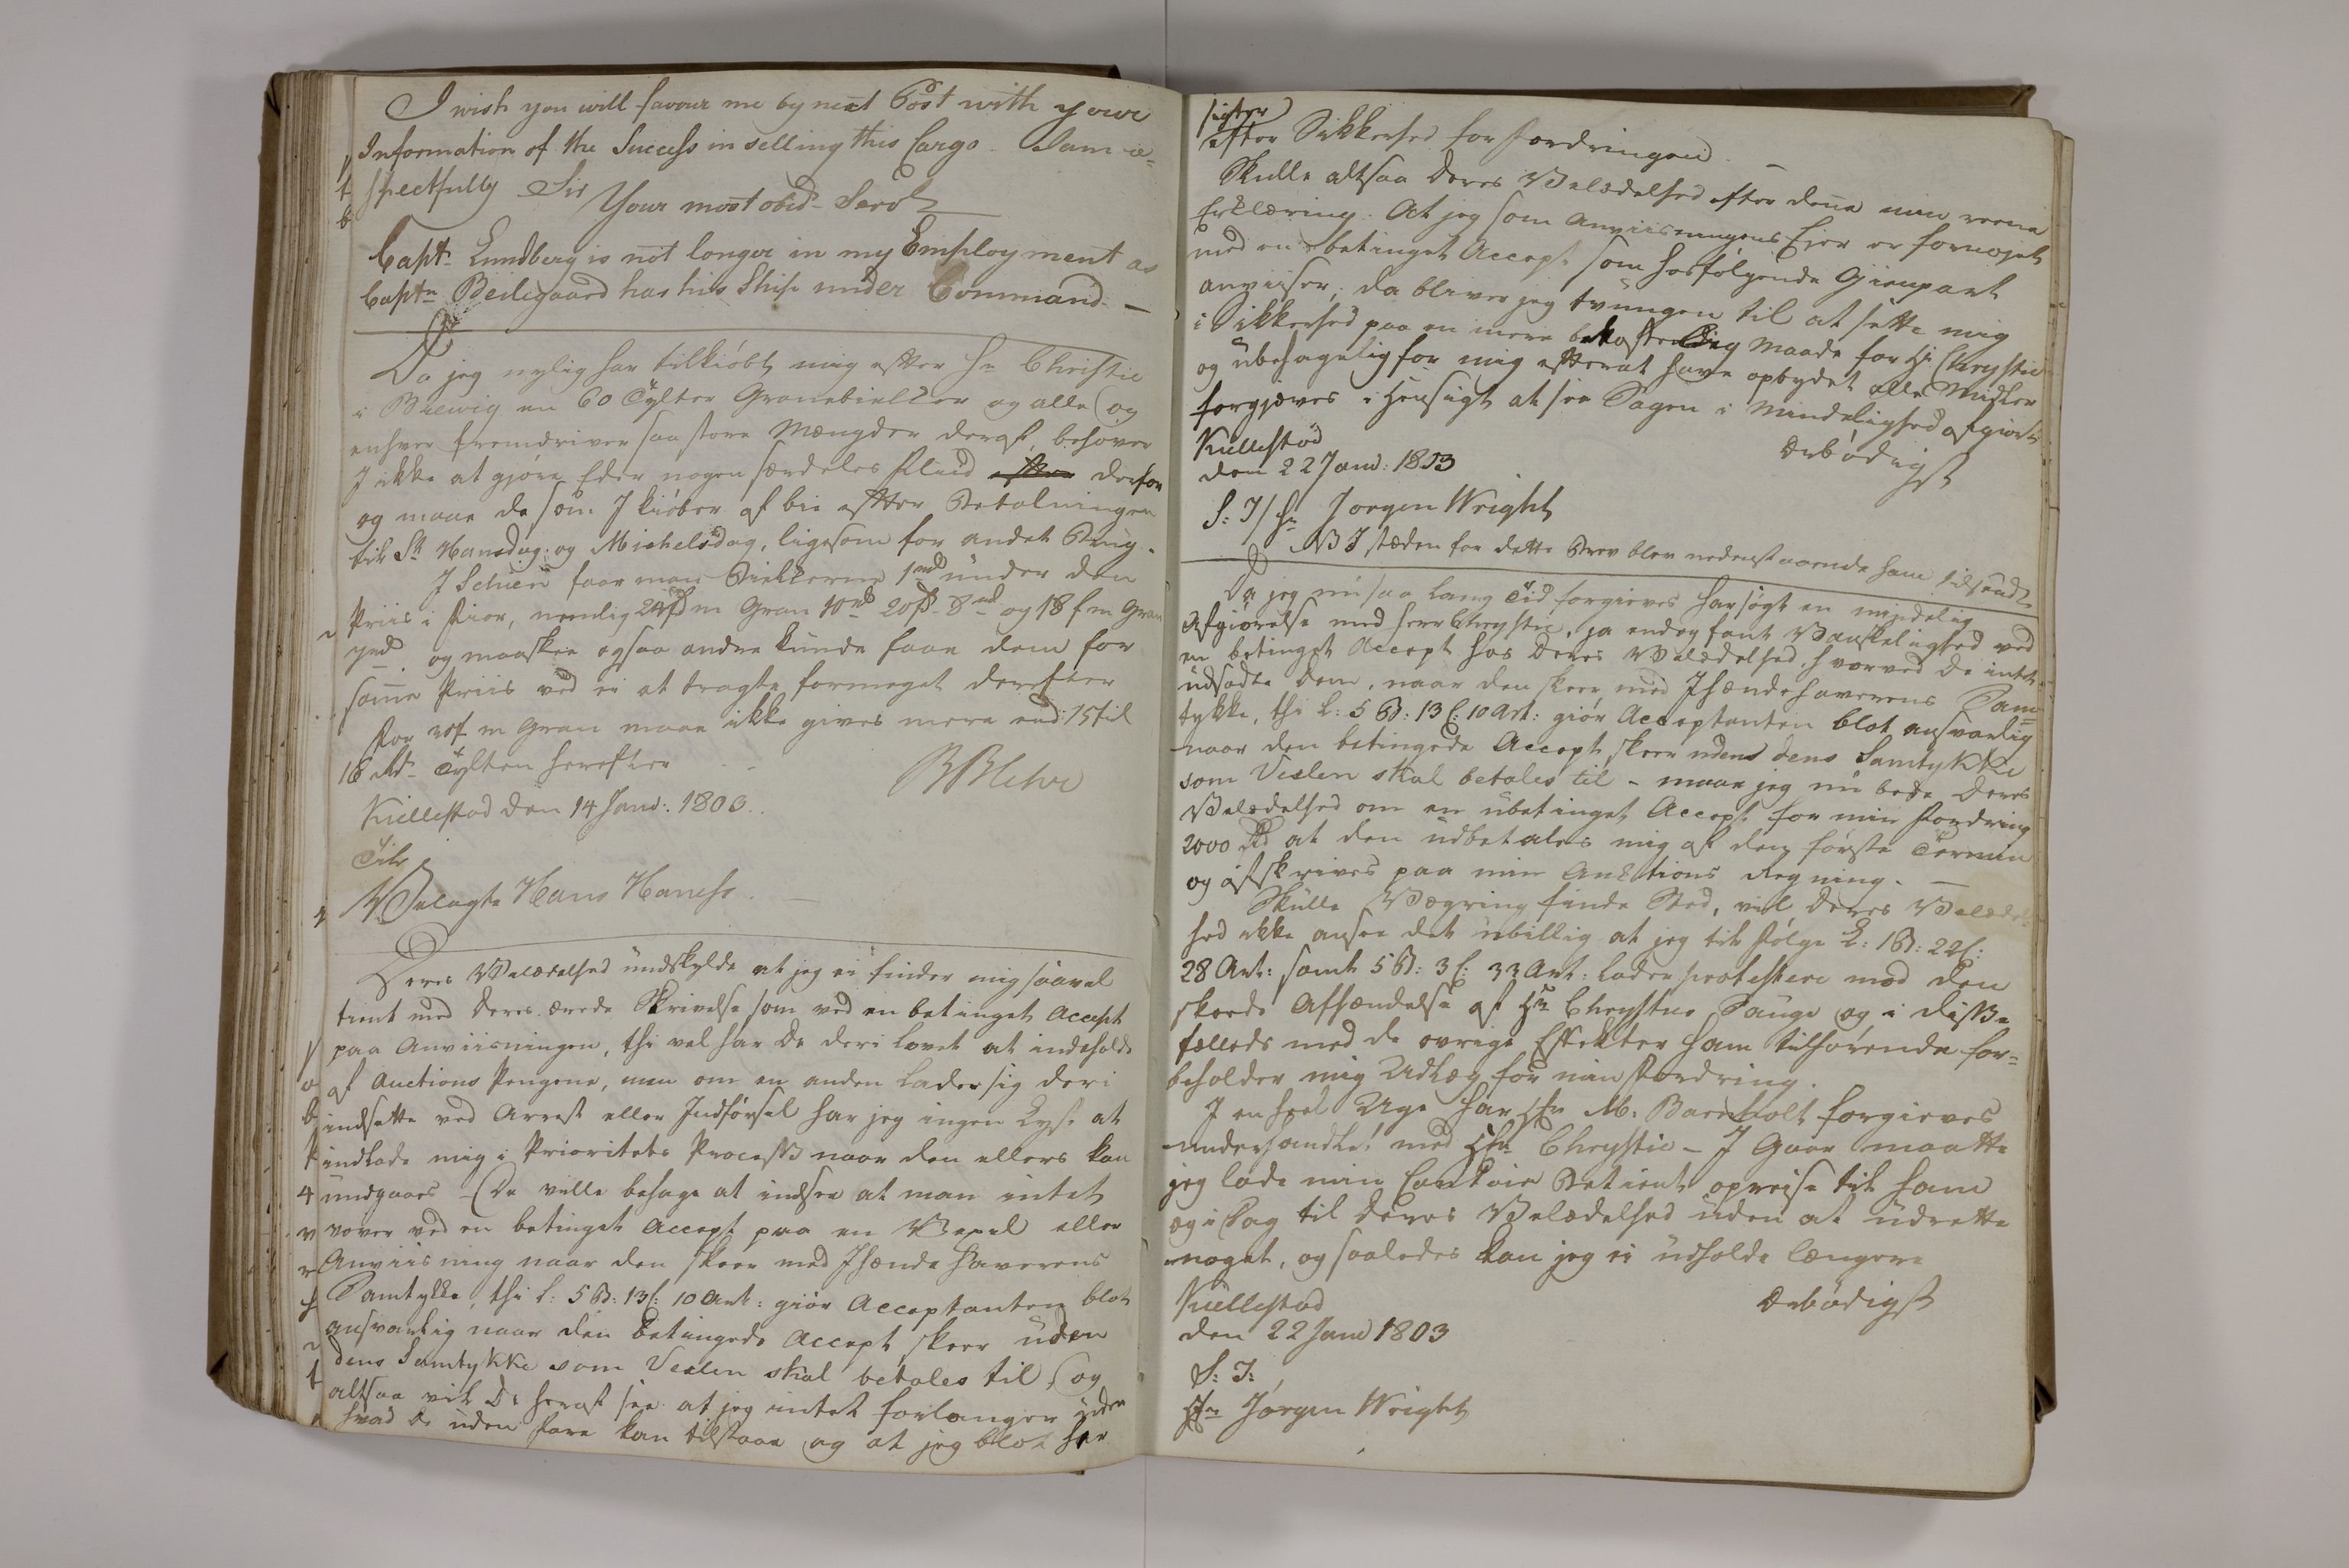 I wish you will favour me by next Post with your
Information of the Success in selling this Cargo. I am re-
spectfully Sir
Your most obed. Servt
Captn Lundberg is not longer in my Employment as
Captn Beilegaard has his Ship under Command. —
Da jeg nylig har tilkiöbt mig efter Hr Christie
i Brewig en 60 Tylter Granebielker og alle og
enhver fremdriver saa store Mængder deraf, behøver
I ikke at gjøre Eder nogen særdeles Fliid derfor
og maae de som I kiöber af bie efter Betalningen
til St Hansdag og Michelsdag, ligesom for andet Brug.
I Schien faar man Bielkerne 1rd under den
Priis i Fior, nemlig 24 f m Gran 10rd 20 f 8rd og 18 f m Gran
7rd og maaskee ogsaa andre kunde faae dem for
samme Priis ved ei at tragte formeget derefter
For 20 f m Gran maae ikke gives mere end 15 til
16 Rd Tylten herefter
BBlehr
Kiillestad den 14 Janv: 1803.
Til
Velagte Hans Hansen
Deres Velædelhed undskylde at jeg ei finder mig saavel
tient med Deres ærede Skrivelse som ved en betinget Accept
paa Anviisningen, thi vel har De deri lovet at indeholde
af Auctions Pengene, men om en anden lader sig deri
indsætte ved Arrest eller Indförsel har jeg ingen Lyst at
indlade mig i Prioritets Process naar den ellers kan
undgaaes – De ville behage at indsee at man intet
vover ved en betinget Accept paa en Vexel eller
Anviisning naar den skeer med Ihænde Haverens
Samtykke, thi L: 5 B: 13 C: 10 Art: giör Acceptanten blot
ansvarlig naar den betingede Accept skeer uden
dens Samtykke som Vexlen skal betales til, og
altsaa vil De heraf see at jeg intet forlanger uden
hvad De uden Fare kan tilstaae og at jeg blot har
efter Sikkerhed for Fordringen. —
Skulle altsaa Deres Velædelhed efter denne min reene
Erklæring: At jeg som Anviisningens Eier er fornøjet
med en betinget Accept som hosfölgende Gienpart
anviiser, da bliver jeg tvungen til at sette mig
i Sikkerhed paa en mere bekostelig Maade for Hr Chrystie
og ubehagelig for mig efterat have opbydet alle Midler
forgjæves i Hensigt at see Sagen i Mindelighed afgiort
Kiillestad
den 22 Janv: 1803
Ærbödigst
S: T/ Hr Jorgen Wright
NB I stæden for dette Brev blev nedenstaaende ham tilsendt
Da jeg nu saa lang Tid forgieves har søgt en mindelig
Afgiörelse med Herr Chrystie, ja endog fant Vanskelighed ved
en betinget Accept hos Deres Velædelhed, hvorved De intet
udsadte Dem, naar den skeer med Ihændehaverens Sam-
tykke, thi L: 5 B: 13 C: 10 Art: giör Acceptanten blot ansvarlig
naar den betingede Accept skeer uden dens Samtykke
som Vexlen skal betales til – maae jeg nu bede Deres
Velædelhed om en ubetinget Accept for min Fordring
2000 Rd at den udbetales mig af den förste Termin
og afskrives paa min Auctions Regning. —
Skulle Vægring finde Sted, vil Deres Velædel-
hed ikke ansee det ubillig at jeg til Fölge L: 1 B: 22 C:
28 Art: samt 5 B: 3 C: 33 Art: lader protestere mod den
skeede Afhændelse af Hr Chrysties Sauge og i disse
fælleds med de øvrige Effekter ham tilhørende for-
beholder mig Udlæg for min Fordring.
I en heel Uge har Hr M. Barnholt forgieves
underhandlet med Hr Chrystie – I Gaar maatte
jeg lade min Contoir Betient opreise til ham
og i Dag til Deres Velædelhed uden at udrette
noget, og saaledes kan jeg ei udholde længere
Kiillestad
den 22 Janv 1803
Ærbödigst
S: T:
Hr Jörgen Wright